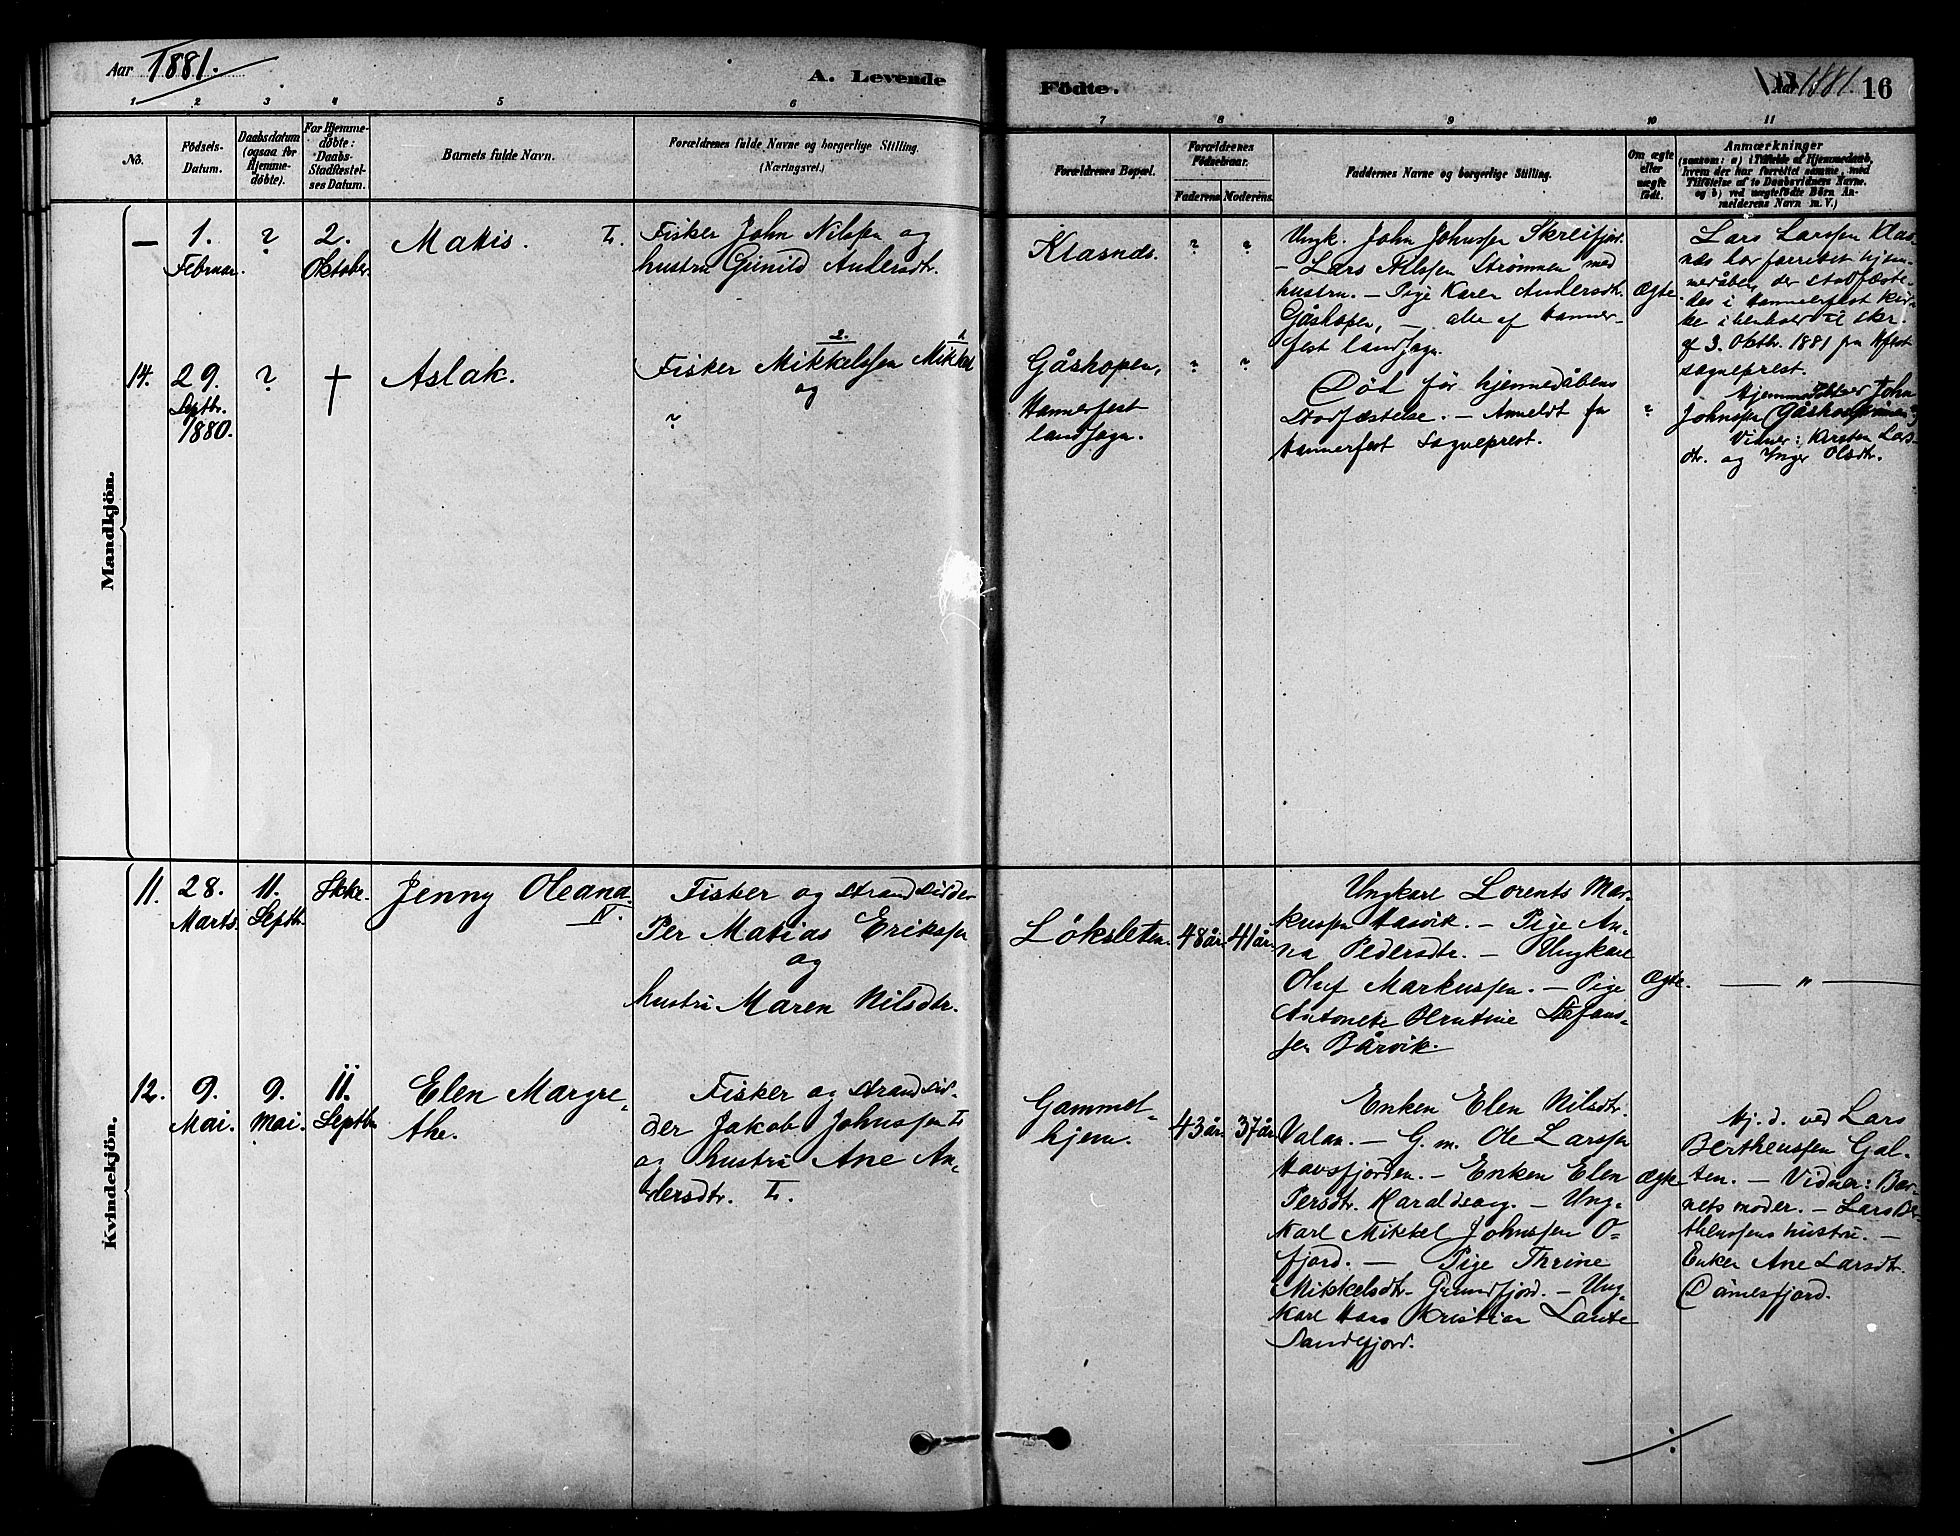 Aar 1881.
A. Levende
Födte.
Aar 1881.
16
1 2 3 4 5 6
7 8 9 10 11
No.
Födsels-
Datum.
Daabsdatum
(ogsaa for
Hjemme-
døbte).
For Hjemme-
døbte:
Daabs-
Stadfæstel-
ses Datum.
Barnets fulde Navn.
Forældrenes fulde Navne og borgerlige Stilling.
(Næringsvei.)
Forældrenes Bopæl.
Forældrenes
Födselsaar.
Faderens
Moderens.
Faddernes Navne og borgerlige Stilling.
Om ægte
eller
uægte
født.
Anmærkninger
(saasom: a) i Tilfælde af Hjemmedaab,
hvem der har forrettet samme, med
Tilføielse af to Daabsvidners Navne,
og b) ved uægtefødte Børn An-
melderens Navn m. V.)
Mandkjön.
—
1.
Februar.
?
2.
Oktober.
Matis.
Fisker John Nilssen og
hustru Gunild Andersdtr.
Klasnes.
?
?
Ungk. John Johnssen Skreifjor.
— Lars Nilssen Strømmen med
hustru. — Pige Karen Andersdtr.
Gåshopen, — alle af Hammer-
fest landsogn.
Ægte.
Lars Larssen Klas-
næs har forrettet hjem-
medåben, der stadfæste-
des i Hammerfest Kir-
ke i henhold til skr.
af 3. Oktb. 1881 fra Hfest
sogneprest.
14.
29.
Septbr.
1880.
?
†
Aslak.
Fisker Mikkelssen Mikkel
2. 1.
og
?
Gåshopen,
Hammerfest
landsogn.
?
?
Död før hjemmedåbens
Stadfæstelse. — Anmeldt fra
Hammerfest Sogneprest.
?
John
Johnssen
Vidner: Kirsten Lars-
dtr. og Inger Olsdtr.
Kvindekjön.
11.
28.
Marts.
11.
Septb.
Ikke.
Jenny Oleana
N.
Fisker og strandsidder
Per Matias Erikssen
og
hustru Maren Nilsdtr.
Løksleten.
48 år.
41 år.
Ungkarl Lorents Mar-
kussen Hasvik. — Pige An-
na Pedersdtr. — Ungkarl
Oluf Markussen. — Pige
Antonete Stefans-
sen Bårvik.
Ægte.
— " —
12.
9.
Mai.
9.
Mai.
11.
Septbr.
Elen Margre-
the.
Fisker og strandsid-
der Jakob Johnssen
og hustru Ane An-
dersdtr.
Gammel-
hjem.
43 år.
37 år.
Enken Elen Nilsdtr.
Valan. — G. m. Ole Larssen
Havsfjorden. — Enken Elen
Persdtr. — Ung-
karl Mikkel Johnssen O-
fjord. — Pige Thrine
Mikkelsdtr. Grundfjord. — Ung-
karl Hans Kristian
Sandefjord.
Ægte
Hj. d. ved Lars
Berthenssen Gal-
ten. — Vidner: Bar-
nets moder. — Lars Ber-
thenssens hustru. —
Enken Ane Larsdtr.
Dønnesfjord.